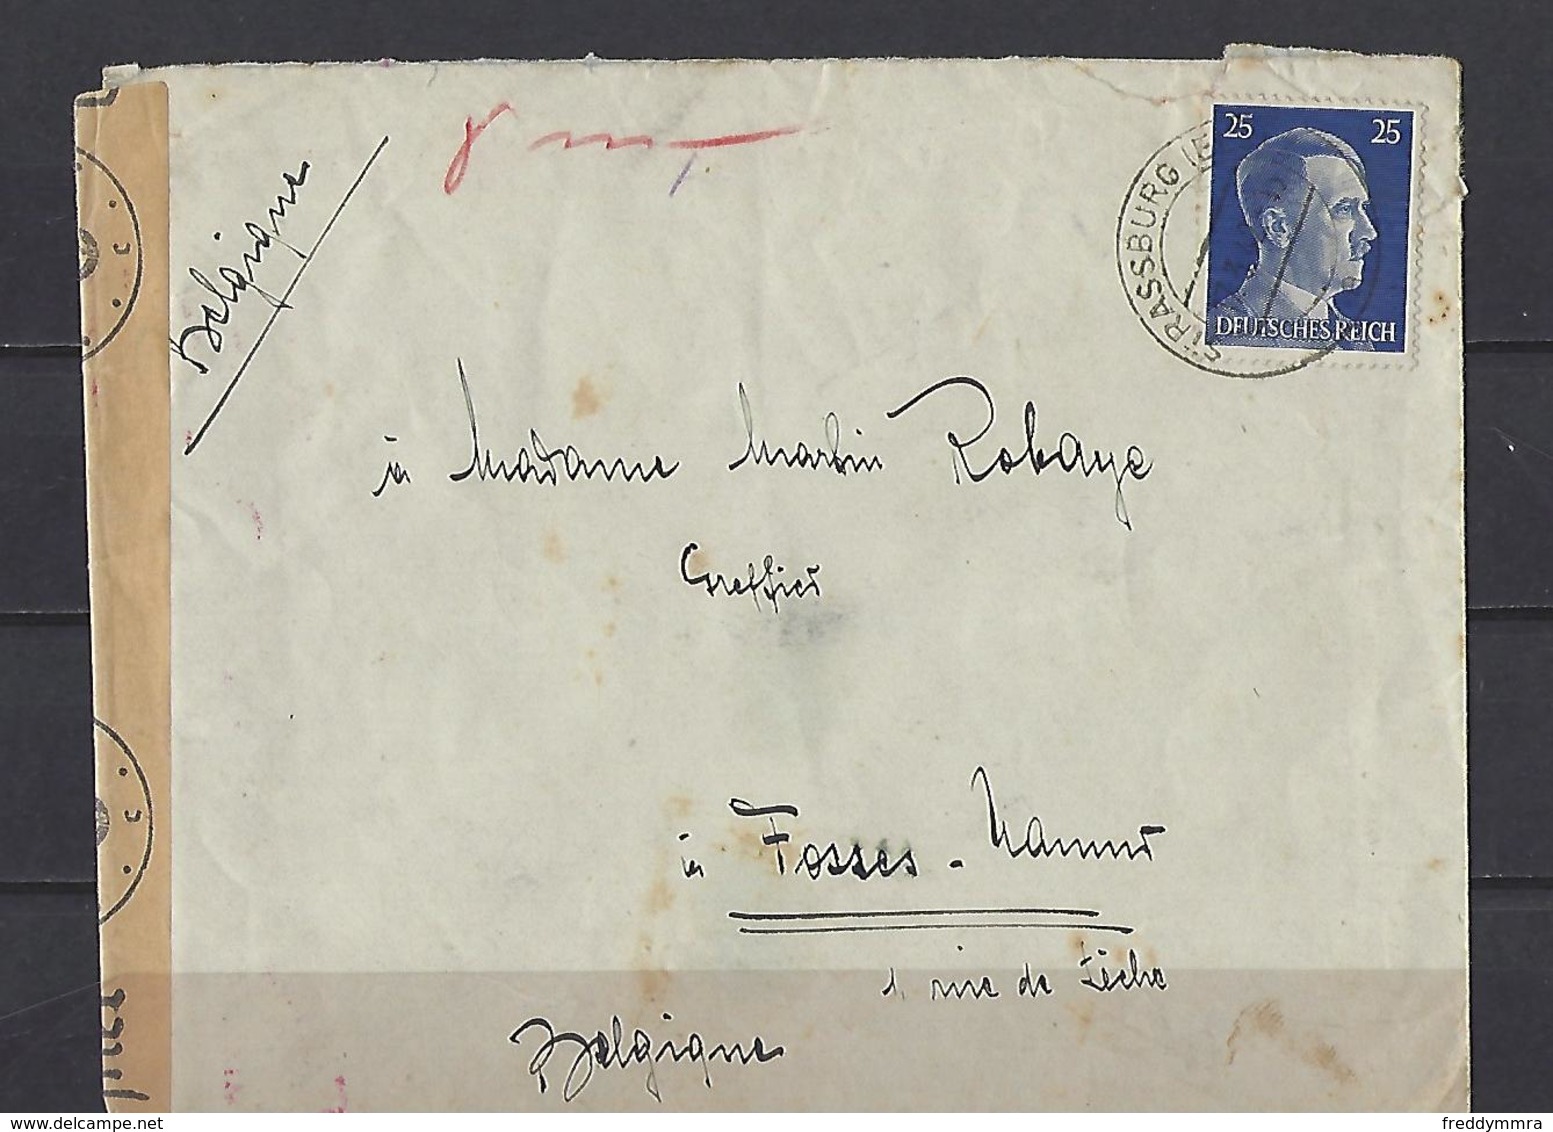 Belgique
25 25
DEUTSCHES REICH
STRASSBURG (E
à Madame Martin Robaye
Greffier
à Fosses - Namur
1, rue de
Belgique
c
c
delcampe.net
freddymmra